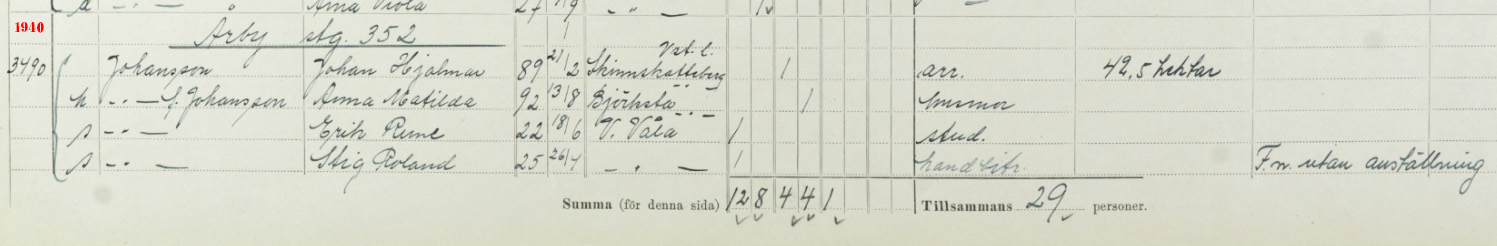 " Anna Viola 27 " —
1940
Arby stg. 352
3490 Johansson Johan Hjalmar 89 21/2 Skinnskatteberg Vst. l. 1 arr. 42,5 hektar
h -"- f. Johansson Anna Matilda 92 13/8 Björksta -"- 1 husmor
s -"- Erik Rune 22 18/6 V. Våla 1 stud.
s -"- Stig Roland 25 26/7 -"- 1 handbitr. F.n. utan anställning
Summa (för denna sida) 12 8 4 4 1 Tillsammans 29 personer.